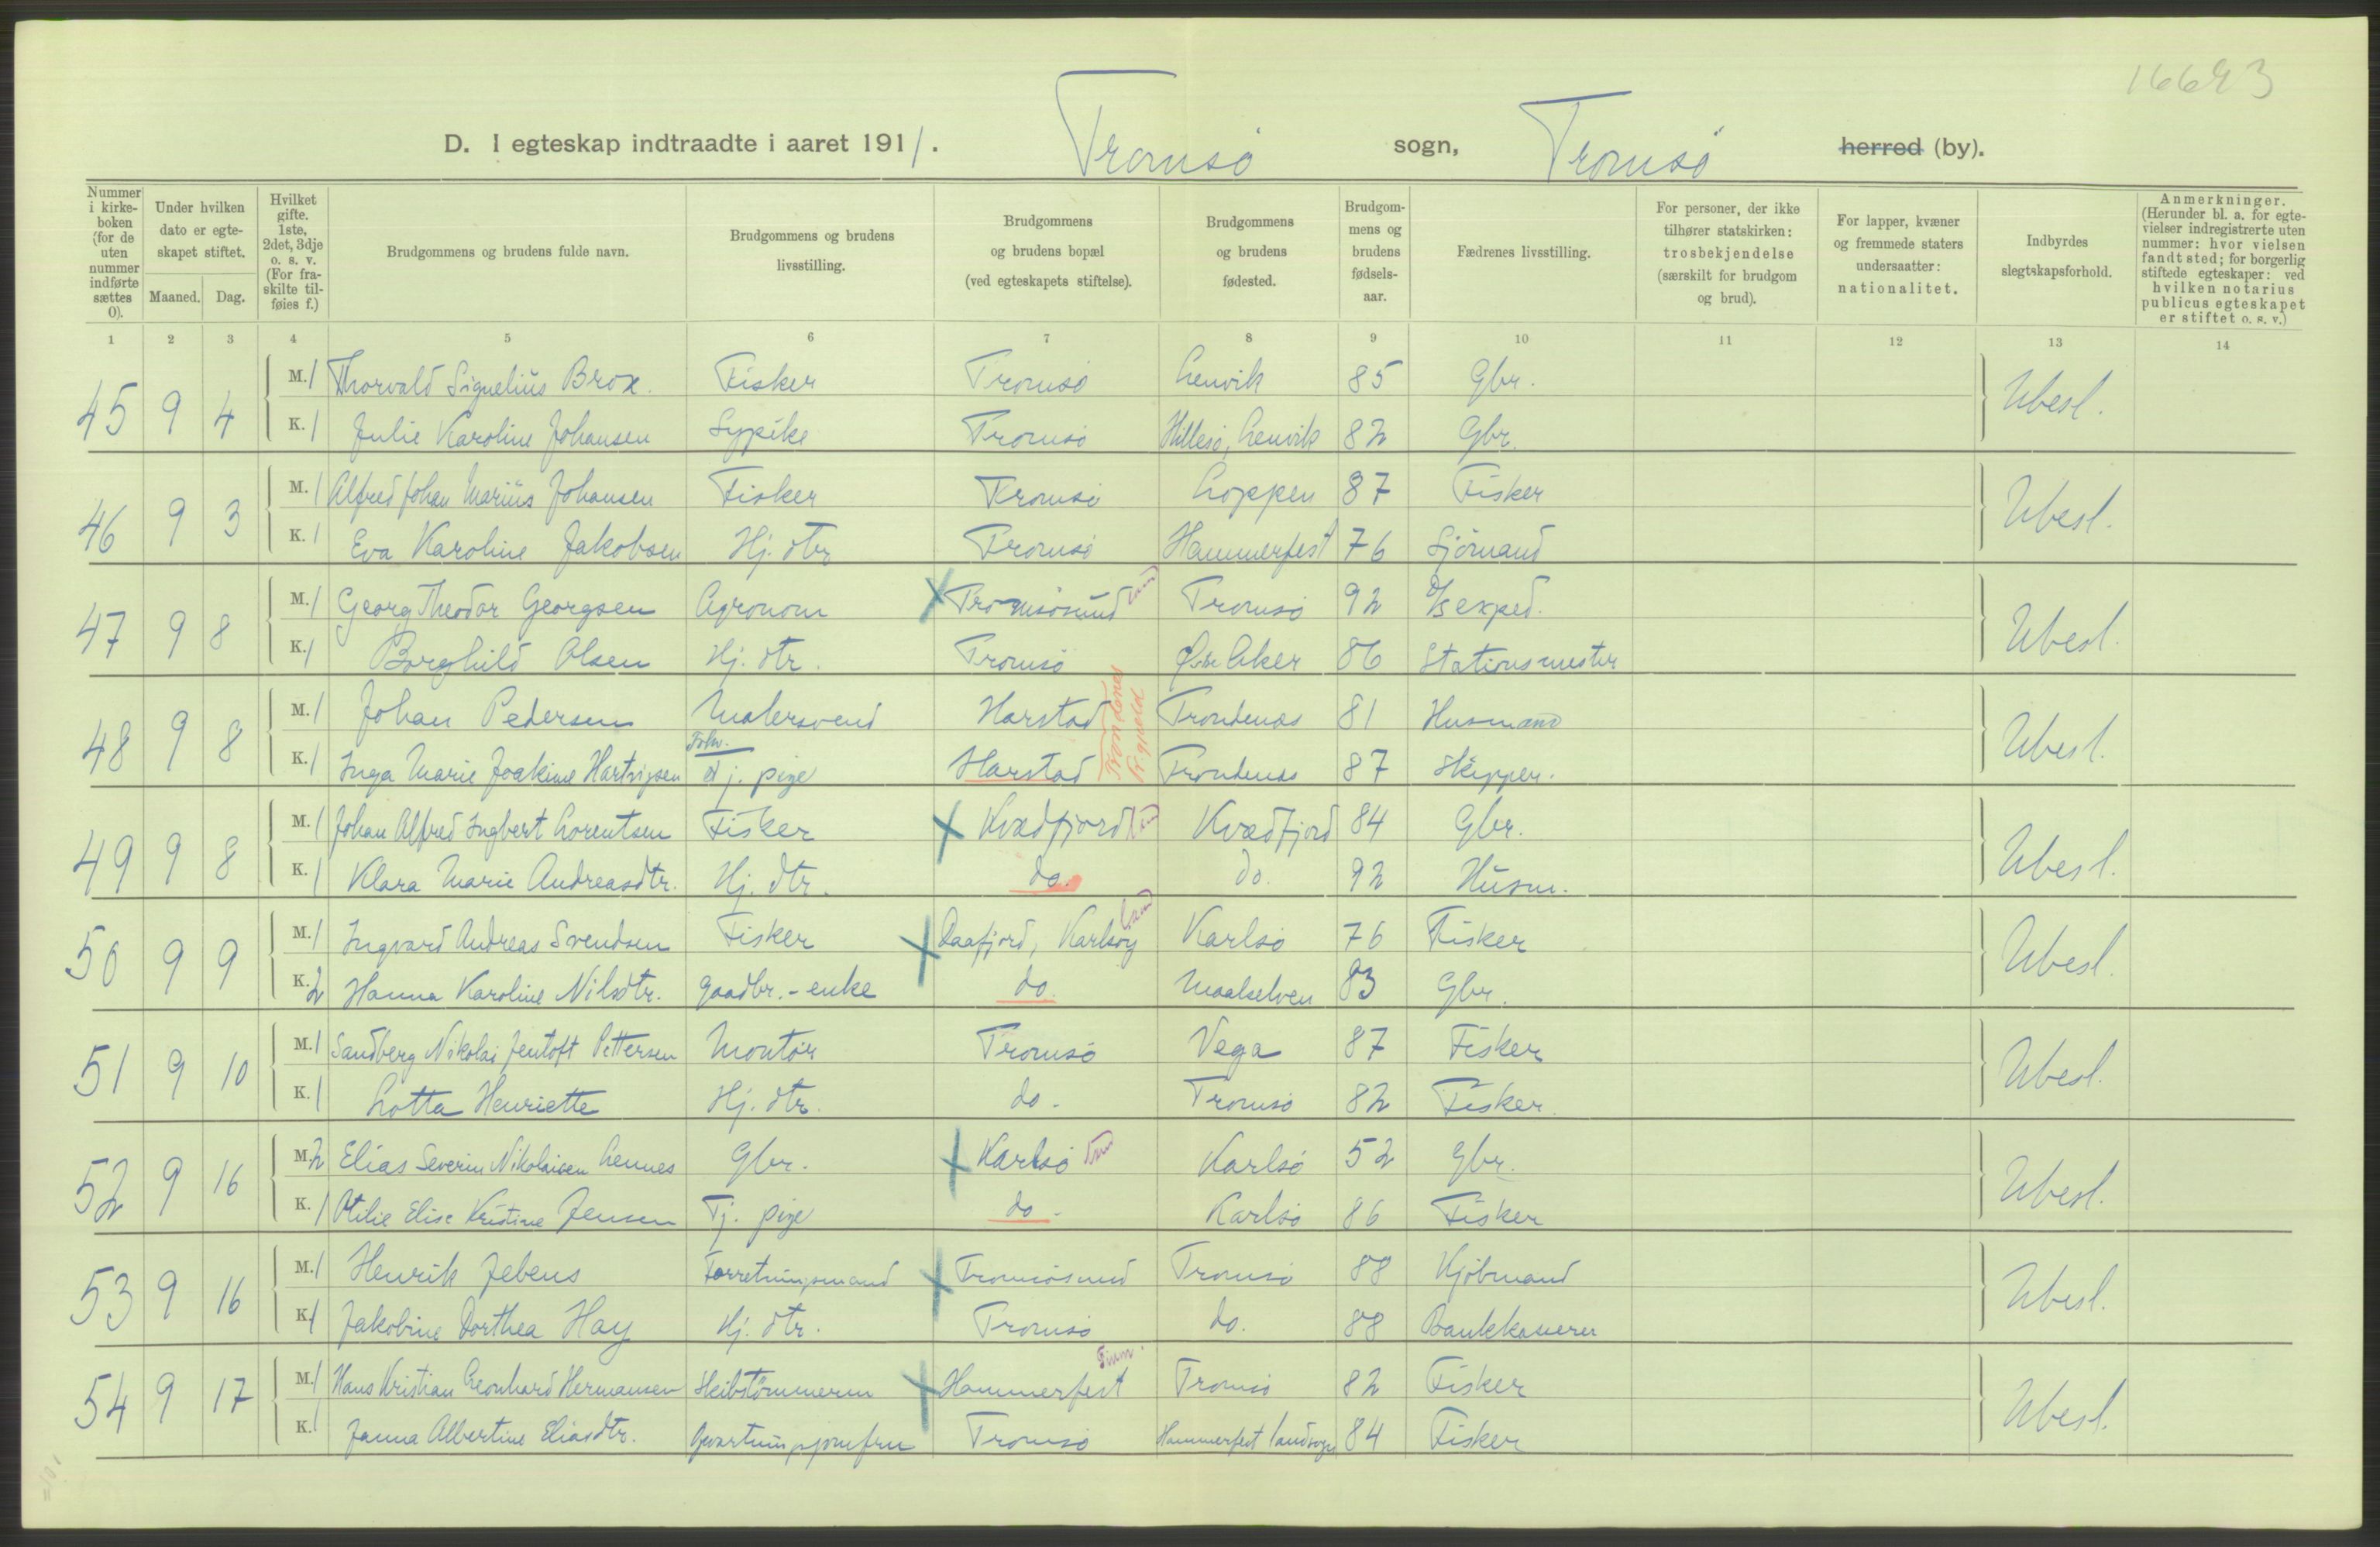 16693
D. I egteskap indtraadte i aaret 1911. Tromsö sogn, Tromsö herred (by).
Nummer i kirke-boken (for de uten nummer indførte sættes 0).
Under hvilken dato er egte-skapet stiftet.
Maaned. Dag.
Hvilket gifte. 1ste, 2det, 3dje o. s. v. (For fra-skilte til-føies f.)
Brudgommens og brudens fulde navn.
Brudgommens og brudens livsstilling.
Brudgommens og brudens bopæl (ved egteskapets stiftelse).
Brudgommens og brudens fødested.
Brudgom-mens og brudens fødsels-aar.
Fædrenes livsstilling.
For personer, der ikke tilhører statskirken: trosbekjendelse (særskilt for brudgom og brud).
For lapper, kvæner og fremmede staters undersaatter: nationalitet.
Indbyrdes slegtskapsforhold.
Anmerkninger. (Herunder bl. a. for egte-vielser indregistrerte uten nummer: hvor vielsen fandt sted; for borgerlig stiftede egteskaper: ved hvilken notarius publicus egteskapet er stiftet o. s. v.)
1 2 3 4 5 6 7 8 9 10 11 12 13 14
45 9 4 M. 1 Thorvald Signelius Brox. Fisker Tromsö Lenvik 85 Gbr. Ubesl.
K. 1 Julie Karoline Johansen Sypike Tromsö Hillesö, Lenvik 82 Gbr.
46 9 3 M. 1 Alfred Johan Marius Johansen Fisker Tromsö Loppen 87 Fisker Ubesl.
K. 1 Eva Karoline Jakobsen Hj. dtr Tromsö Hammerfest 76 Sjömand
47 9 8 M. 1 Georg Theodor Georgsen Agronom Tromsösund Tromsö 92 D/s exped. Ubesl.
K. 1 Borghild Olsen Hj. dtr. Tromsö Östre Aker 86 Stationsmester
48 9 8 M. 1 Johan Pedersen Malersvend Harstad Trondenes 81 Husmand Ubesl.
K. 1 Inga Marie Joakime Hartvigsen Tj. pige Harstad Trondenes 87 Skipper.
49 9 8 M. 1 Johan Alfred Ingbert Lorentsen Fisker Kvædfjord Kvædfjord 84 Gbr. Ubesl.
K. 1 Klara Marie Andreasdtr. Hj. dtr. do. do. 92 Husm.
50 9 9 M. 1 Ingvard Andreas Svendsen Fisker Daafjord, Karlsöy Karlsö 76 Fisker Ubesl.
K. 2 Hanna Karoline Nilsdtr. gaadbr.-enke do. Maalselven 83 Gbr.
51 9 10 M. 1 Sandberg Nikolai Jentoft Pettersen Montör Tromsö Vega 87 Fisker Ubesl.
K. 1 Lotta Henriette Hj. dtr. do. Tromsö 82 Fisker.
52 9 16 M. 2 Elias Severin Nikolaisen Lennes Gbr. Karlsö Karlsö 52 Gbr. Ubesl.
K. 1 Otilie Elise Kristine Jensen Tj. pige do. Karlsö 86 Fisker
53 9 16 M. 1 Henrik Jebens Forretningsmand Tromsösund Tromsö 88 Kjöbmand Ubesl.
K. 1 Jakobine Dorthea Hay Hj. dtr. Tromsö do. 88 Bankkaserer
54 9 17 M. 1 Hans Kristian Leonhard Hermansen Skibstömmerm Hammerfest Tromsö 82 Fisker Ubesl.
K. 1 Janna Albertine Eliasdtr. Opvartningsjomfru Tromsö Hammerfest landsogn 84 Fisker